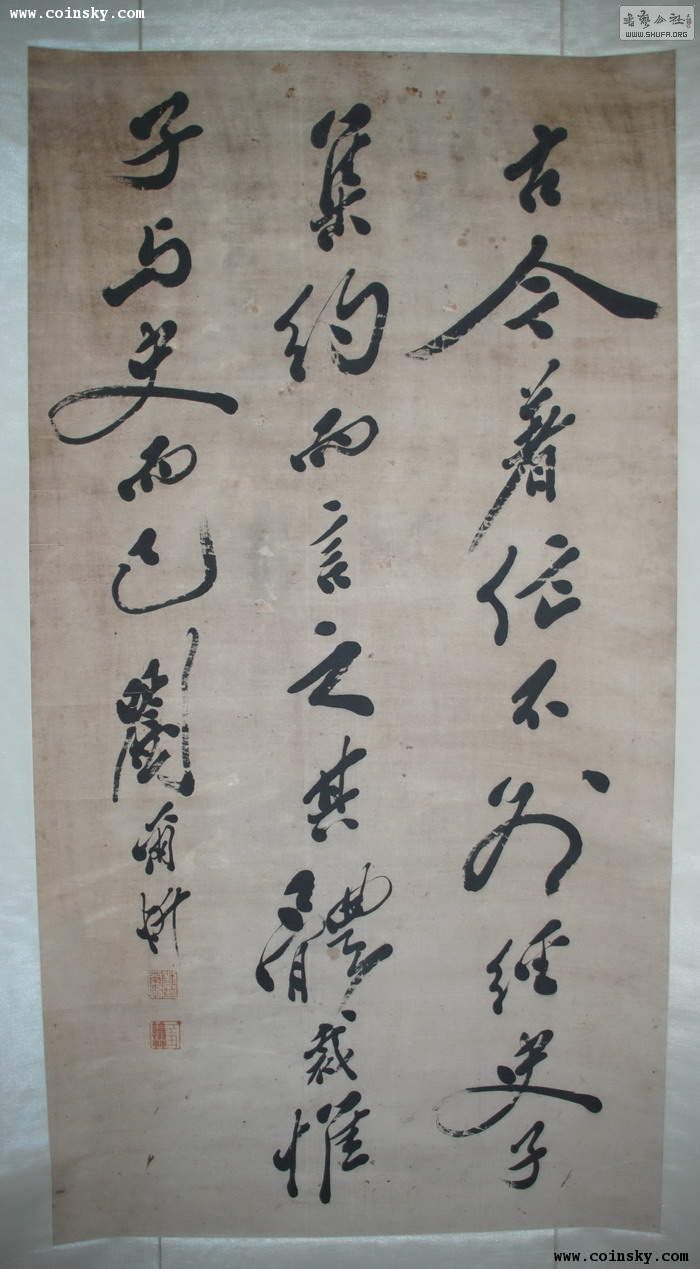 www.coinsky.com
書藝公社
WWW.SHUFA.ORG
古今著作不外經史子
集約而言之其體裁惟
子与史而已 劉爾炘
www.coinsky.com